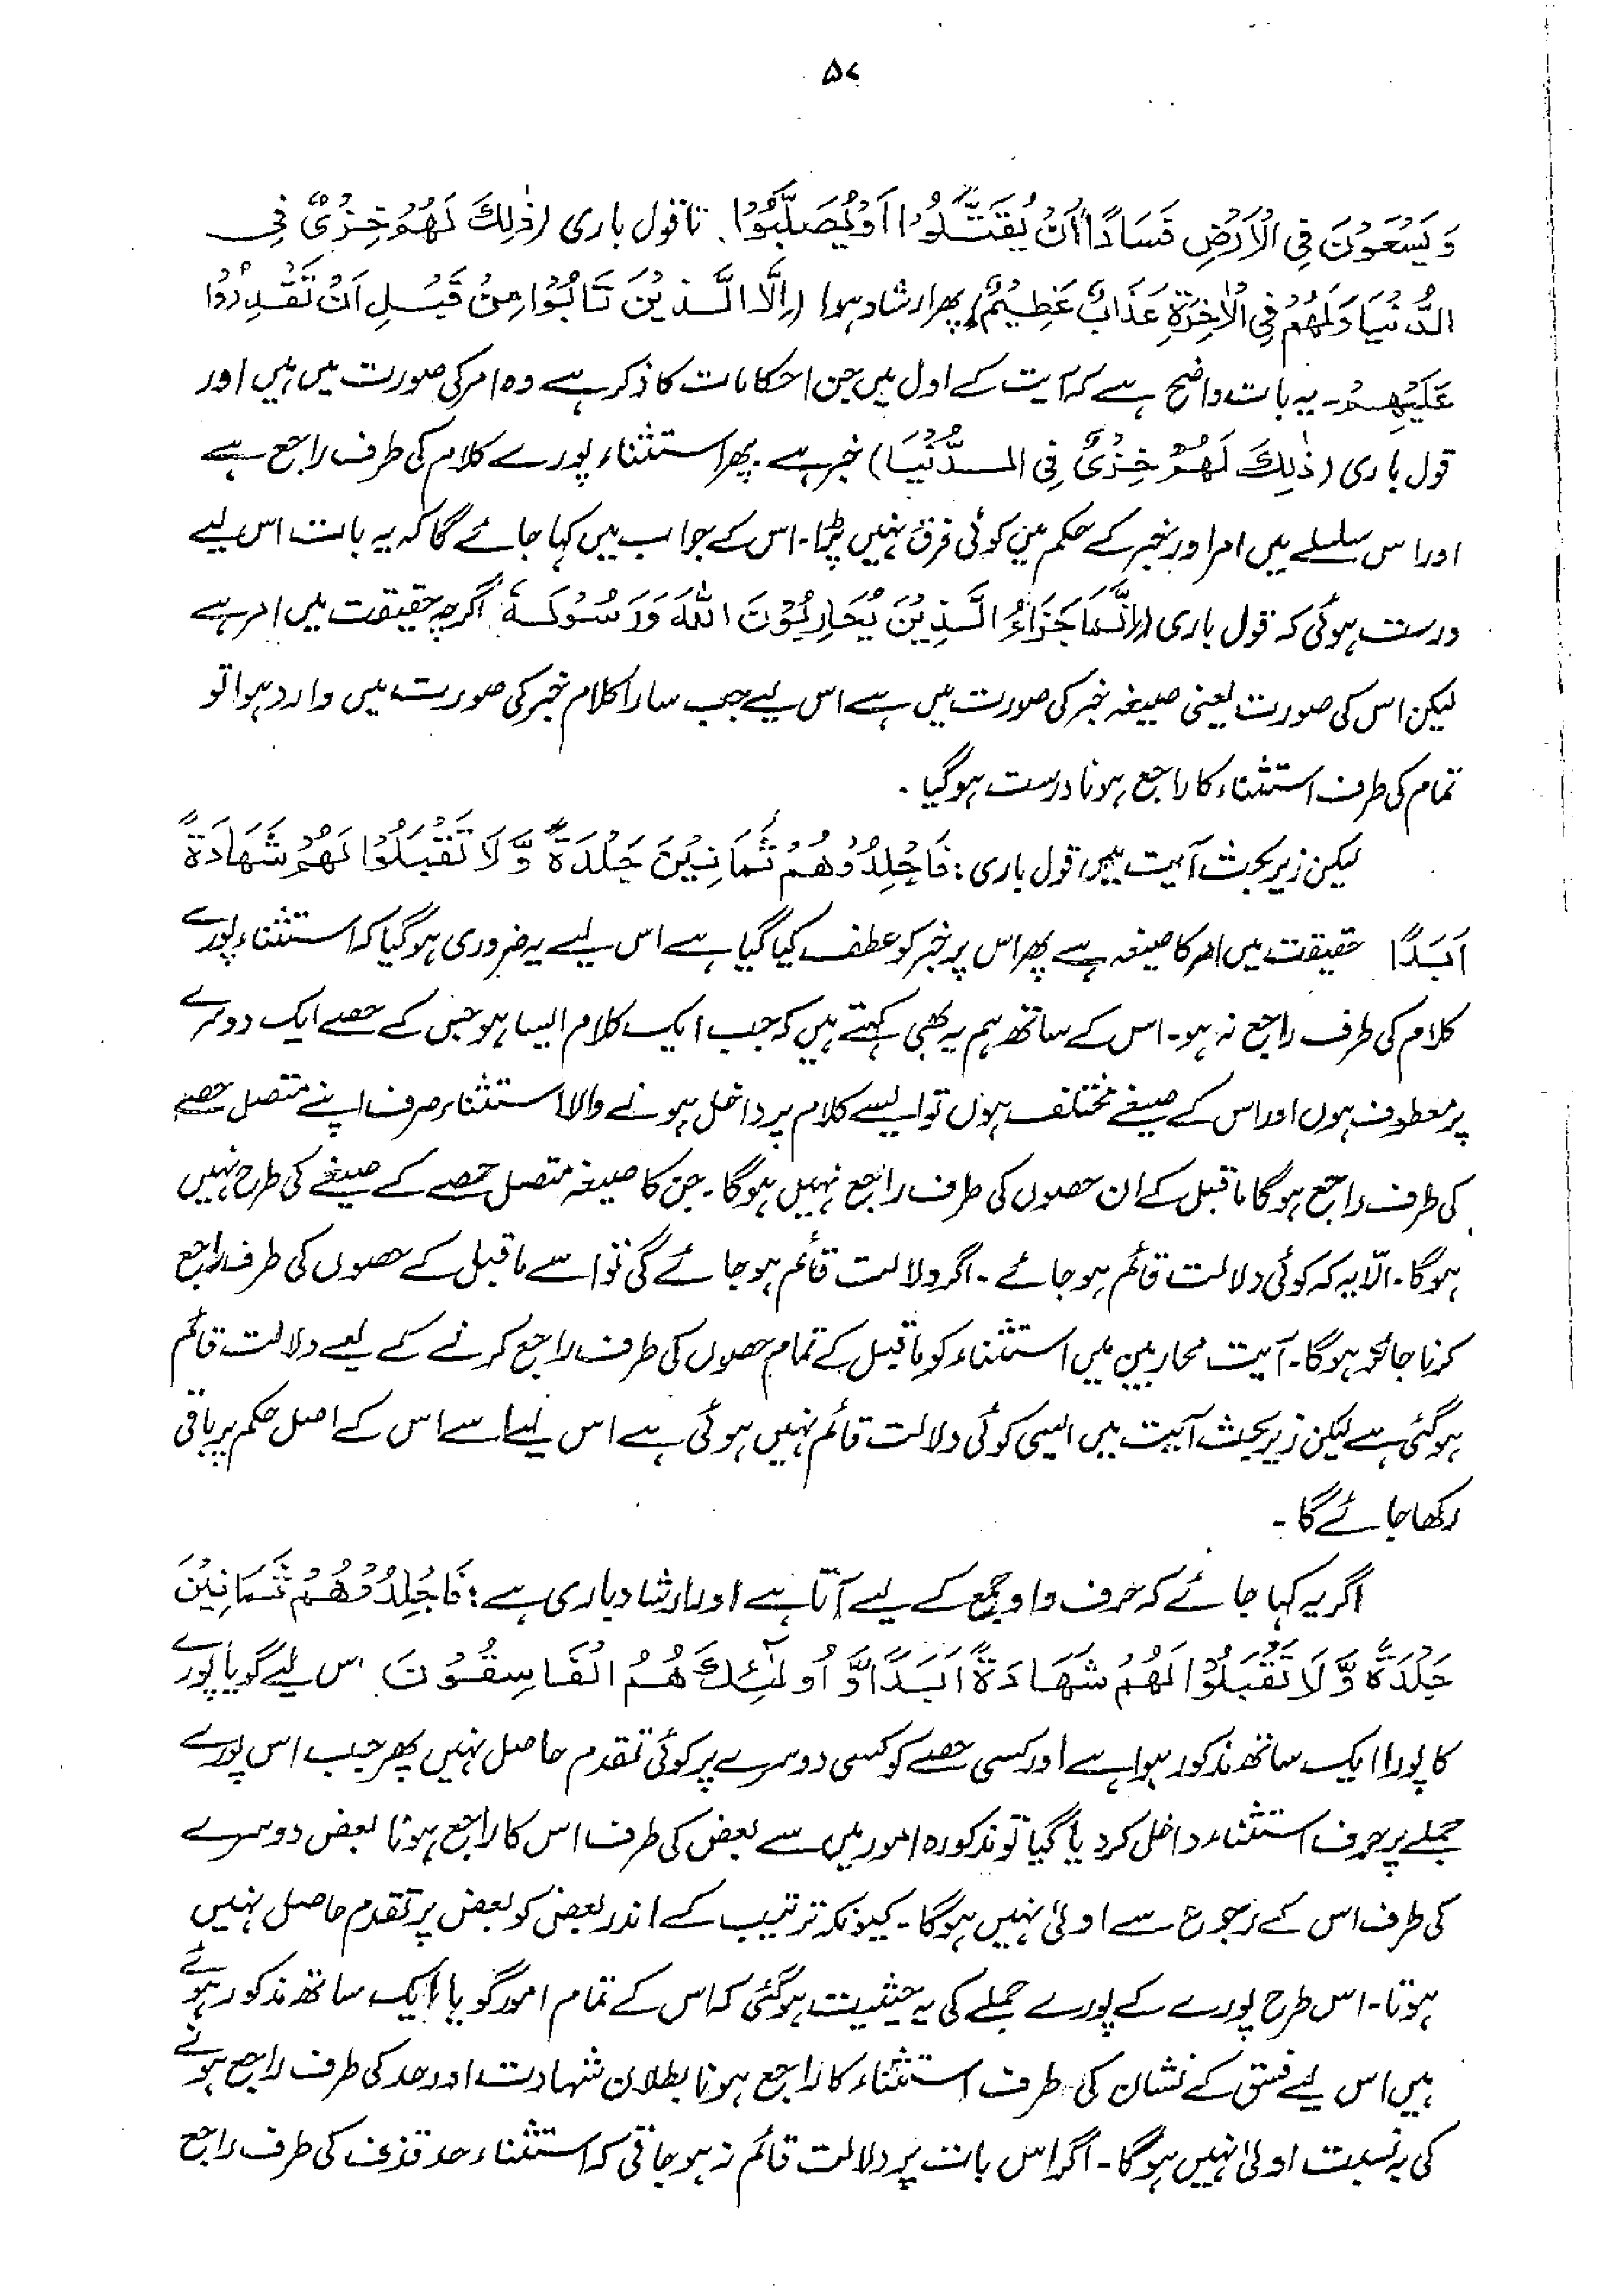 ۵۷
وَيَسْعَوْنَ فِي الْاَرْضِ فَسَادًا اَنْ يُّقَتَّلُوْا اَوْ يُصَلَّبُوْا. تا قول باری (ذٰلِكَ لَهُمْ خِزْىٌ فِي
الدُّنْيَا وَلَهُمْ فِي الْاٰخِرَةِ عَذَابٌ عَظِيْمٌ) پھر ارشاد ہوا (اِلَّا الَّذِيْنَ تَابُوْا مِنْ قَبْلِ اَنْ تَقْدِرُوْا
عَلَيْهِمْ۔ یہ بات واضح ہے کہ آیت کے اول میں جن احکامات کا ذکر ہے وہ امر کی صورت میں ہیں اور
قول باری (ذٰلِكَ لَهُمْ خِزْىٌ فِي الدُّنْيَا) خبر ہے۔ پھر استثناء پورے کلام کی طرف راجع ہے
اور اس سلسلے میں امر اور خبر کے حکم میں کوئی فرق نہیں پڑا۔ اس کے جواب میں کہا جائے گا کہ یہ بات اس لیے
درست ہوئی کہ قول باری (اِنَّمَا جَزَاءُ الَّذِيْنَ يُحَارِبُوْنَ اللهَ وَرَسُوْلَهٗ اگرچہ حقیقت میں امر ہے
لیکن اس کی صورت یعنی صیغہ خبر کی صورت میں ہے اس لیے جب سارا کلام خبر کی صورت میں وارد ہوا تو
تمام کی طرف استثناء کا راجع ہونا درست ہوگیا۔
لیکن زیر بحث آیت میں قول باری: فَاجْلِدُوْهُمْ ثَمَانِيْنَ جَلْدَةً وَّلَا تَقْبَلُوْا لَهُمْ شَهَادَةً
اَبَدًا حقیقت میں امر کا صیغہ ہے پھر اس پر خبر کو عطف کیا گیا ہے اس لیے یہ ضروری ہوگیا کہ استثناء پورے
کلام کی طرف راجع نہ ہو۔ اس کے ساتھ ہم یہ بھی کہتے ہیں کہ جب ایک کلام ایسا ہو جس کے حصے ایک دوسرے
پر معطوف ہوں اور اس کے صیغے مختلف ہوں تو ایسے کلام پر داخل ہونے والا استثناء صرف اپنے متصل حصے
کی طرف راجع ہوگا ماقبل کے ان حصوں کی طرف راجع نہیں ہوگا۔ جن کا صیغہ متصل حصے کے صیغے کی طرح نہیں
ہوگا۔ الّا یہ کہ کوئی دلالت قائم ہو جائے۔ اگر دلالت قائم ہو جائے گی تو اسے ماقبل کے حصوں کی طرف راجع
کرنا جائز ہوگا۔ آیت محاربین میں استثناء کو ماقبل کے تمام حصوں کی طرف راجع کرنے کے لیے دلالت قائم
ہوگئی ہے لیکن زیر بحث آیت میں ایسی کوئی دلالت قائم نہیں ہوئی ہے اس لیے اسے اس کے اصل حکم پر باقی
رکھا جائے گا۔
اگر یہ کہا جائے کہ حرف واو جمع کے لیے آتا ہے اور ارشاد باری ہے: فَاجْلِدُوْهُمْ ثَمَانِيْنَ
جَلْدَةً وَّلَا تَقْبَلُوْا لَهُمْ شَهَادَةً اَبَدًا وَّاُولٰٓئِكَ هُمُ الْفَاسِقُوْنَ. اس لیے گویا پورے
کا پورا ایک ساتھ مذکور ہوا ہے اور کسی حصے کو کسی دوسرے پر کوئی تقدم حاصل نہیں پھر جب اس پورے
جملے پر حرف استثناء داخل کر دیا گیا تو مذکورہ امور میں سے بعض کی طرف اس کا راجع ہونا بعض دوسرے
کی طرف اس کے رجوع سے اولیٰ نہیں ہوگا۔ کیونکہ ترتیب کے اندر بعض کو بعض پر تقدم حاصل نہیں
ہوتا۔ اس طرح پورے کے پورے جملے کی یہ حیثیت ہوگئی کہ اس کے تمام امور گویا ایک ساتھ مذکور ہوئے
ہیں اس لیے فسق کے نشان کی طرف استثناء کا راجع ہونا بطلان شہادت اور حد کی طرف راجع ہونے
کی بہ نسبت اولیٰ نہیں ہوگا۔ اگر اس بات پر دلالت قائم نہ ہو جاتی کہ استثناء حد قذف کی طرف راجع